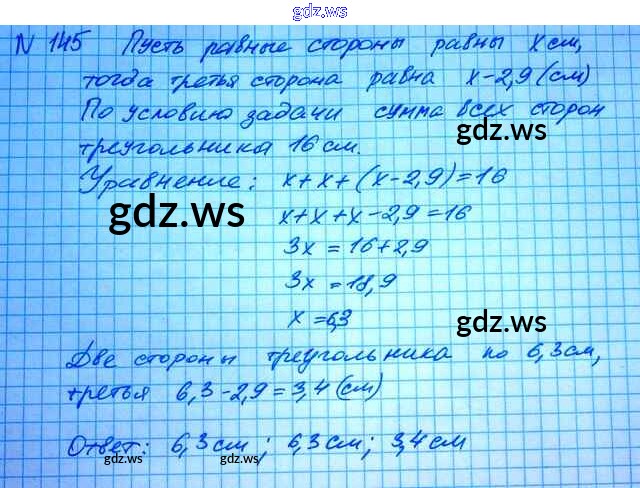 gdz.ws
N 145 Пусть равные стороны равны x см,
тогда третья сторона равна x-2,9 (см)
По условию задачи сумма всех сторон
gdz.ws
треугольника 16 см.
Уравнение: x+x+(x-2,9)=16
gdz.ws
x+x+x-2,9=16
3x=16+2,9
3x=18,9
x=6,3
gdz.ws
Две стороны треугольника по 6,3см,
третья 6,3-2,9=3,4 (см)
Ответ: 6,3см; 6,3см; 3,4см
gdz.ws
gdz.ws